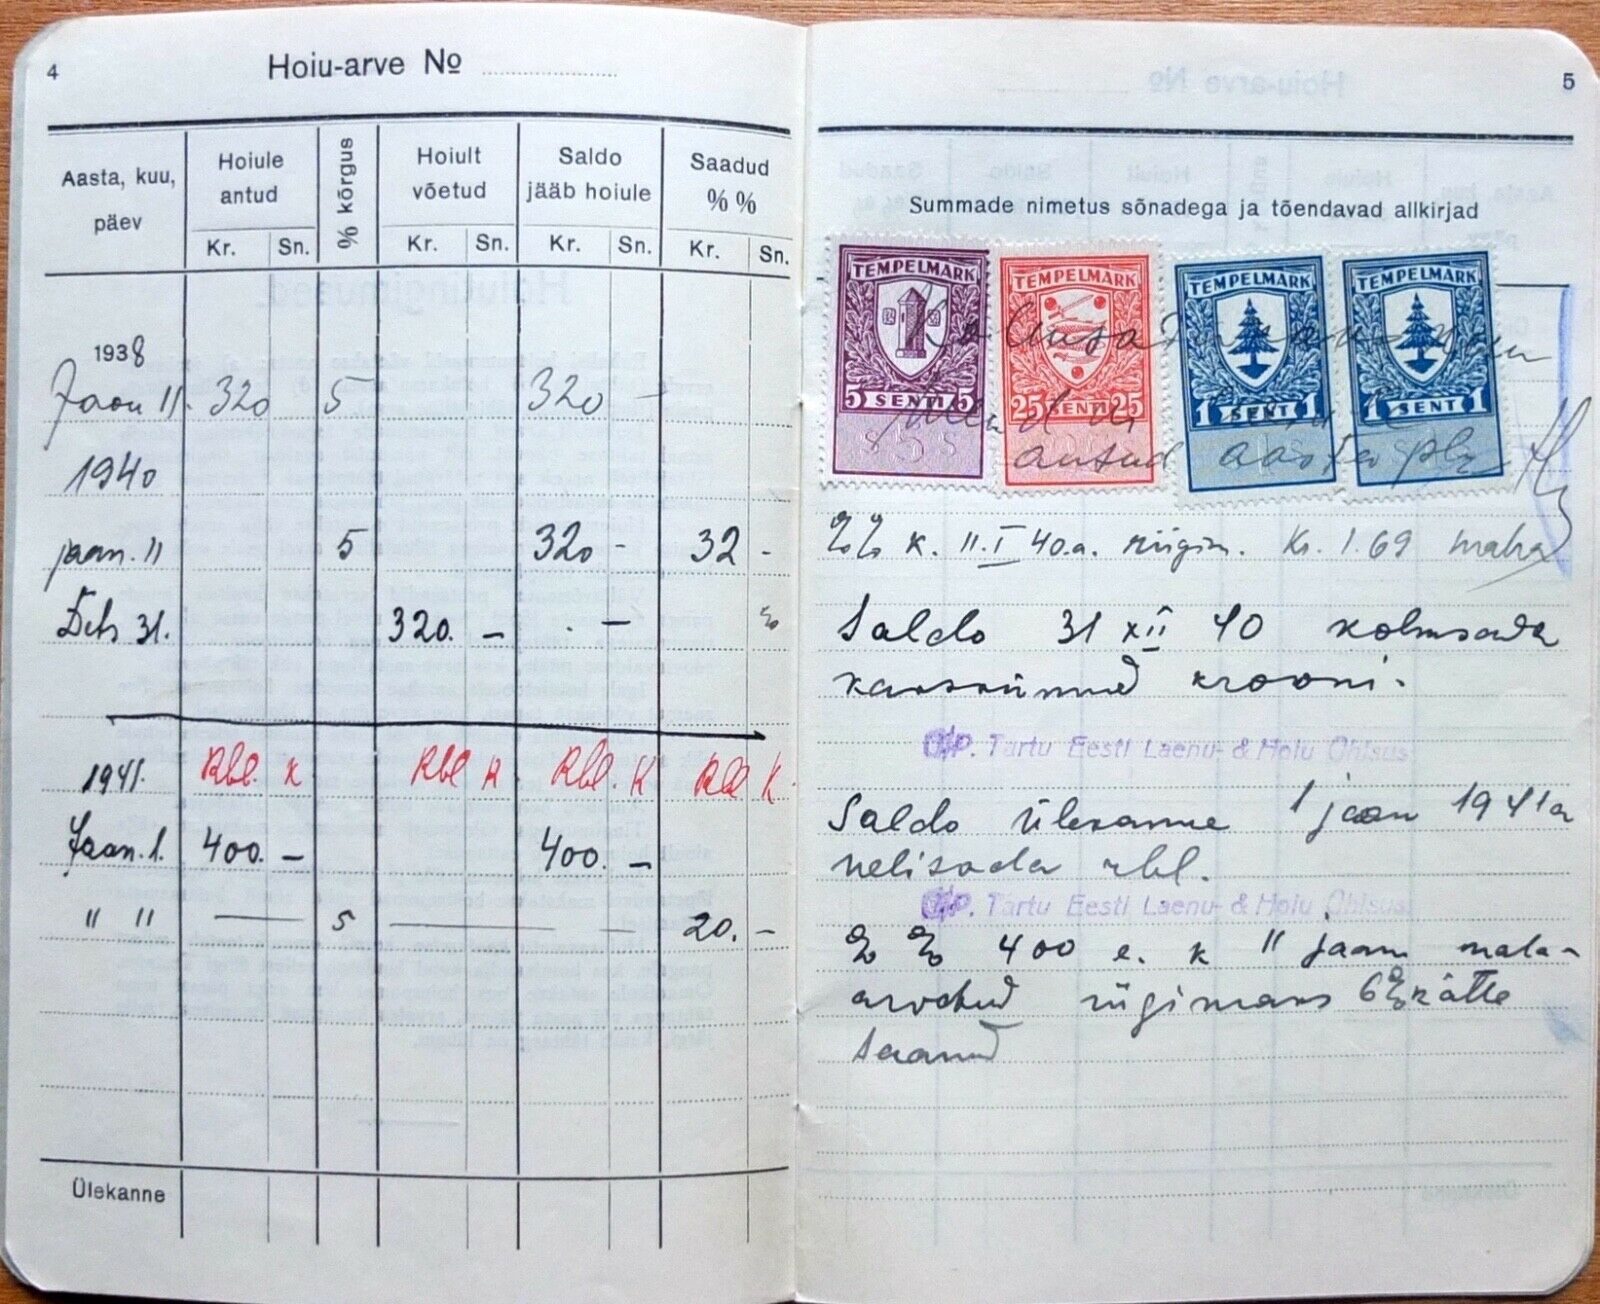 4
Hoiu-arve №
Aasta, kuu, päev
Hoiule antud
% kõrgus
Hoiult võetud
Saldo jääb hoiule
Saadud % %
Kr. Sn. Kr. Sn. Kr. Sn. Kr. Sn.
1938
Jaan 11. 320 5 320 -
1940
jaan. 11 5 320 - 32 -
Dets 31. 320. - . -
1941. Rbl. K Rbl K Rbl. K Rbl K.
Jaan. 1. 400. - 400. -
" " 5 20. -
Ülekanne
5
Summade nimetus sõnadega ja tõendavad allkirjad
TEMPELMARK TEMPELMARK TEMPELMARK TEMPELMARK
5 SENTI 5 25 SENTI 25 1 SENT 1 1 SENT 1
antud aasta ply
%% k. 11.I 40.a. riigim. Kr. 1.69 maha
Saldo 31 XII 40 kolmsada
kakskümmend krooni.
Tartu Eesti Laenu- & Hoiu Ühisus
Saldo ülekanne 1 jaan 1941a
nelisada rbl.
Tartu Eesti Laenu- & Hoiu Ühisus
%% 400 e. k 11 jaan maha-
arvatud riigimaks 6% kätte
saanud